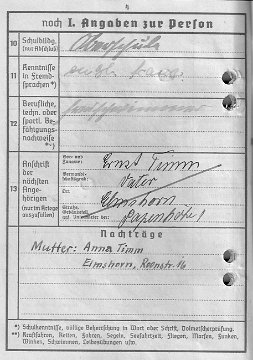 4
noch I. Angaben zur Person
10
Schulbildg.
(nur Abschluß)
Oberschule
11
Kenntnisse
in Fremd-
sprachen *)
12
Berufliche,
techn. oder
sportl. Be-
fähigungs-
nachweise
**)
13
Anschrift
der
nächsten
Ange-
hörigen
(nur im Kriege
auszufüllen)
Vor- und
Zuname:
Ernst Timm
Verwandt-
schaftsgrad:
Vater
Wohnort:
Elmshorn
Straße,
Nachträge
Mutter: Anna Timm
Elmshorn,
*) Schulkenntnisse, völlige Beherrschung in Wort oder Schrift, Dolmetscherprüfung.
**) Kraftfahren, Reiten, Fahren, Segeln, Seefahrtzeit, Fliegen, Morsen, Funken,
Winken, Schwimmen, Leibesübungen usw.